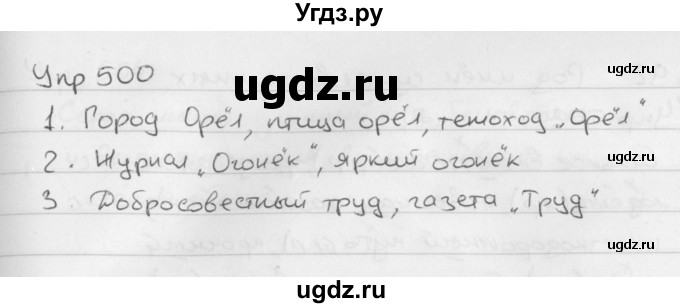 Угдз.ру
Упр 500
ugdz.ru
ugdz.ru
1. Город Орёл, птица орёл, теплоход „Орёл"
ugdz.ru
2. Журнал „Огонёк", яркий огонёк
ugdz.ru
3 Добросовестный труд, газета „Труд"
ugdz.ru
ugdz.ru
ugdz.ru